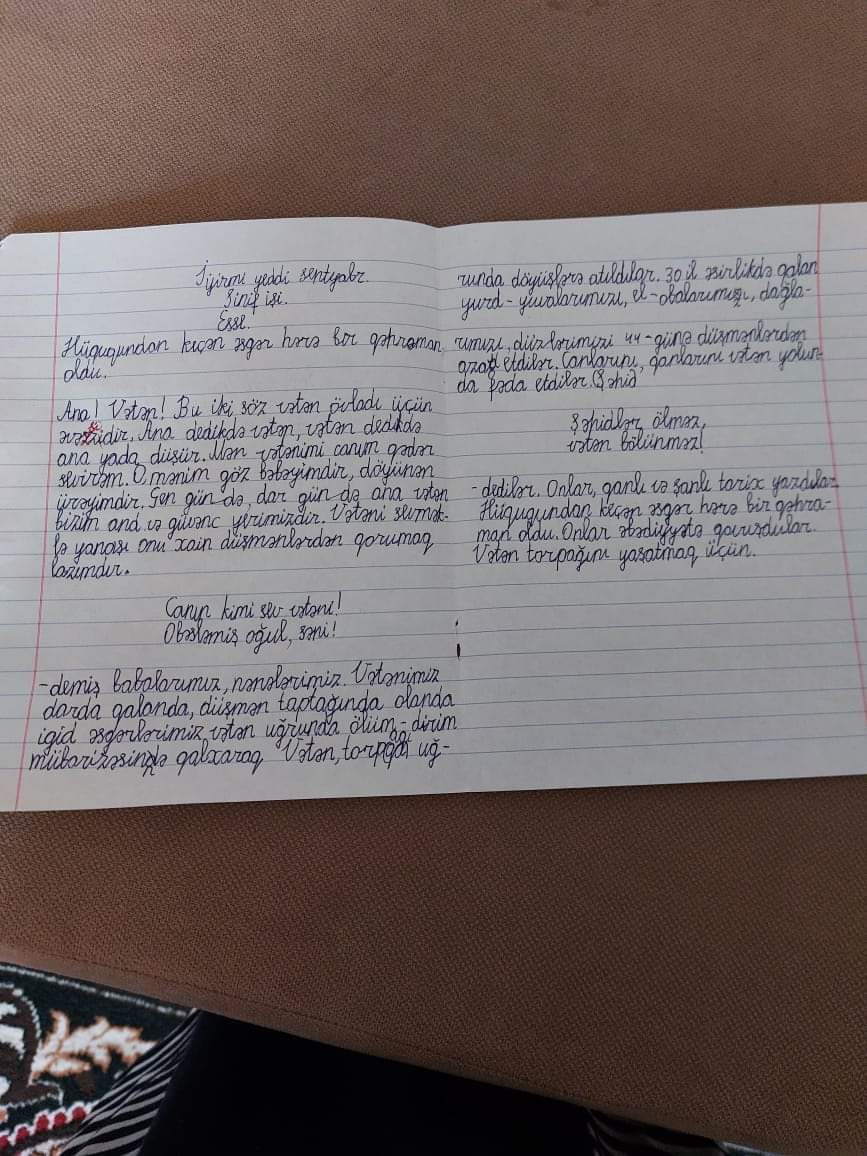 İyirmi yeddi sentyabr.
Sinif işi.
Esse.
Hüququndan keçən əsgər hərə bir qəhrəman
oldu.
Ana! Vətən! Bu iki söz vətən övladı üçün
əvəzsizdir. Ana dedikdə vətən, vətən dedikdə
ana yada düşür. Mən vətənimi canım qədər
sevirəm. O mənim göz bəbəyimdir, döyünən
ürəyimdir. Şen gün də, dar gün də ana vətən
bizim and və güvənc yerimizdir. Vətəni sevmək-
lə yanaşı onu xain düşmənlərdən qorumaq
lazımdır.
Canın kimi sev vətəni!
Obəsləmiş oğul, səni!
-demiş babalarımız, nənələrimiz. Vətənimiz
darda qalanda, düşmən taptağında olanda
igid əsgərlərimiz vətən uğrunda ölüm-dirim
mübarizəsinə qalxaraq Vətən, torpağı uğ-
runda döyüşlərə atıldılar. 30 il əsirlikdə qalan
yurd-yuvalarımızı, el-obalarımızı, dağla-
rımızı, düzlərimizi 44-günə düşmənlərdən
azad etdilər. Canlarını, qanlarını vətən yolun-
da fəda etdilər. Şəhid
Şəhidlər ölməz,
vətən bölünməz!
-dedilər. Onlar, qanlı və şanlı tarix yazdılar.
Hüququndan keçən əsgər hərə bir qəhrə-
man oldu. Onlar əbədiyyətə qovuşdular.
Vətən torpağını yaşatmaq üçün.